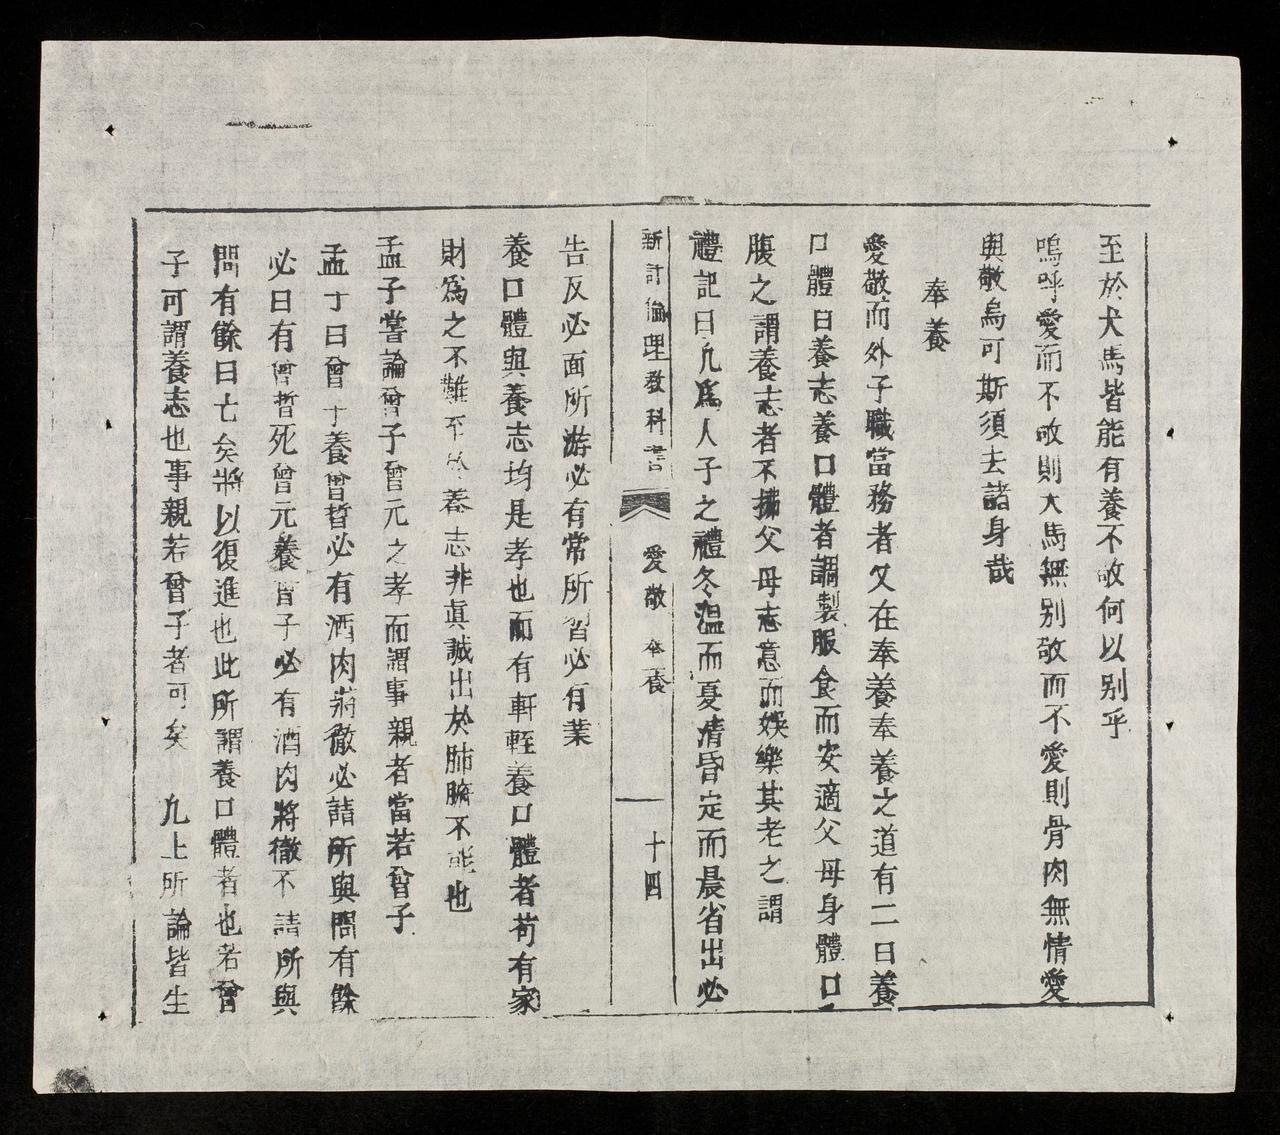 至於犬馬皆能有養不敬何以别乎
嗚呼愛而不敬則犬馬無别敬而不愛則骨肉無情愛
與敬烏可斯須去諸身哉
奉養
愛敬而外子職當務者又在奉養奉養之道有二曰養
口體曰養志養口體者謂製服食而安適父母身體口
腹之謂養志者不拂父母志意而娛樂其老之謂
禮記曰凢爲人子之禮冬溫而夏凊昏定而晨省出必
新訂倫理教科書 愛敬 奉養 十四
告反必面所游必有常所習必有業
養口體與養志均是孝也而有軒輊養口體者苟有家
財爲之不難至於養志非眞誠出於肺腑不能也
孟子嘗論曾子曾元之孝而謂事親者當若曾子
孟子曰曾子養曾晳必有酒肉將徹必請所與問有餘
必曰有曾晳死曾元養曾子必有酒肉將徹不請所與
問有餘曰亡矣將以復進也此所謂養口體者也若曾
子可謂養志也事親若曾子者可矣 凢上所論皆生